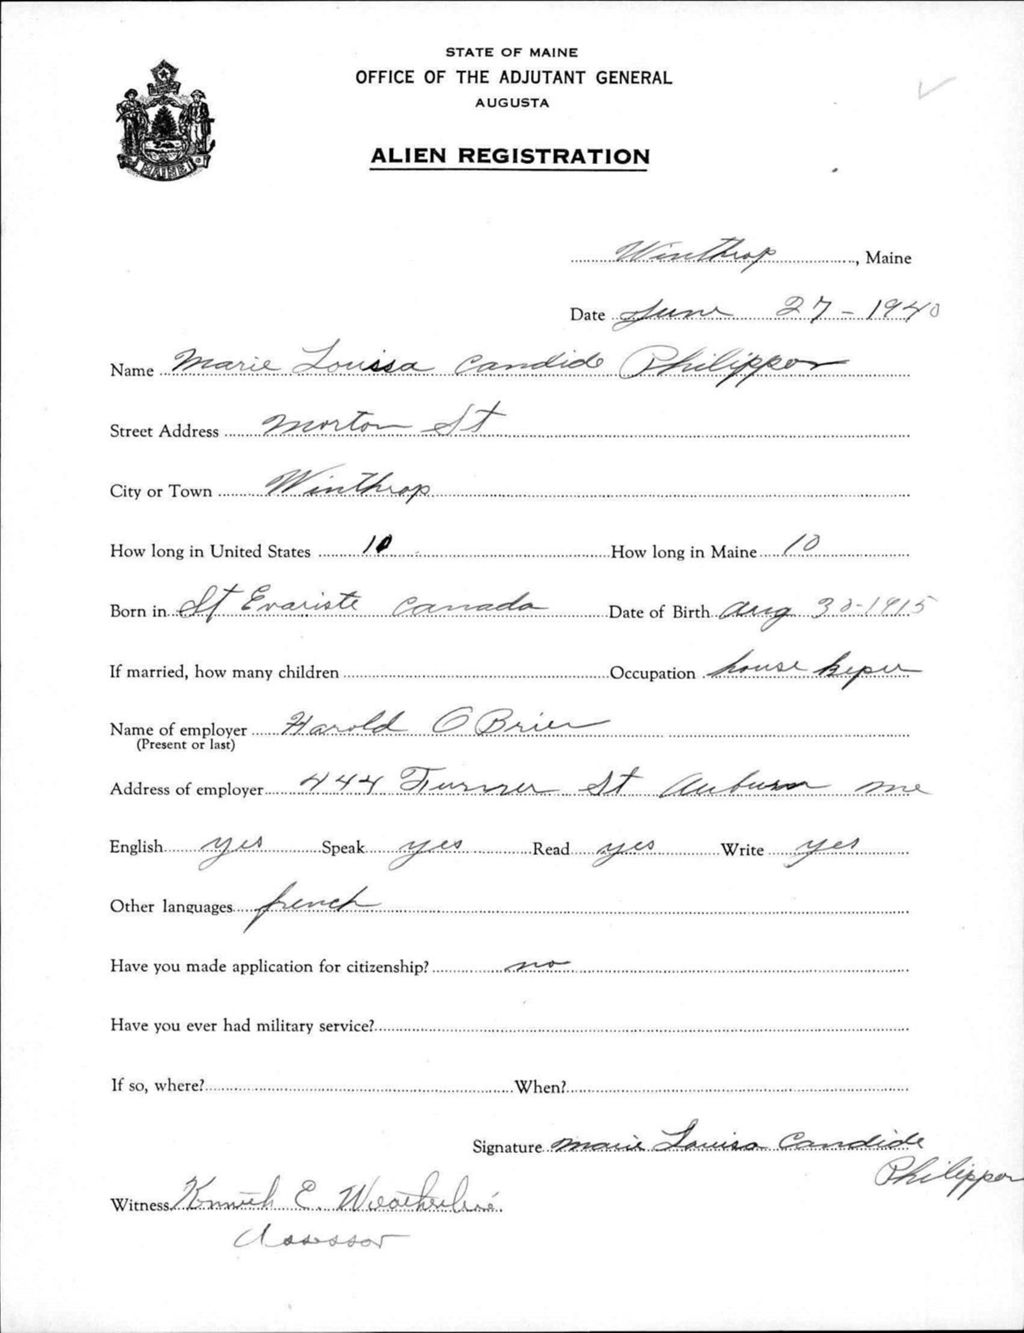 STATE OF MAINE
OFFICE OF THE ADJUTANT GENERAL
AUGUSTA
ALIEN REGISTRATION
MAINE
Winthrop, Maine
Date June 27-1940
Name Marie Louisa Candide Philippon
Street Address Morton St
City or Town Winthrop
How long in United States 10 How long in Maine 10
Born in St Evariste Canada Date of Birth Aug 30-1915
If married, how many children Occupation house keper
Name of employer Harold O Brien
(Present or last)
Address of employer 444 Turner St Auburn me
English yes Speak yes Read yes Write yes
Other languages french
Have you made application for citizenship? no
Have you ever had military service?
If so, where? When?
Signature Marie Louisa Candide
Philippon
Witness Kenneth E.
Assessor